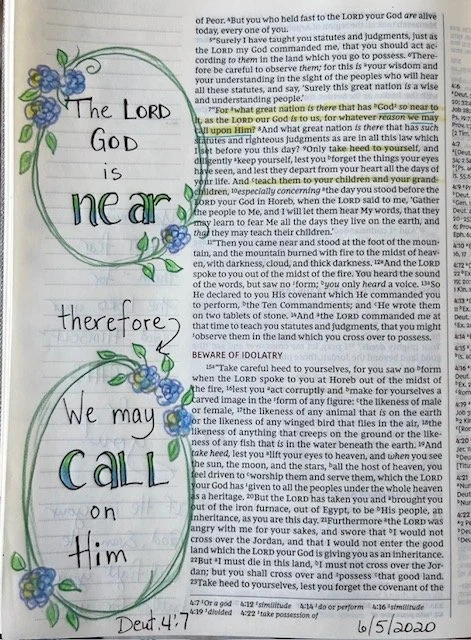 The LORD
GOD
is
near
therefore
We may
CALL
on
Him
Deut. 4:7
of Peor. ⁴But you who held fast to the LORD your God are alive
today, every one of you.
⁵"Surely I have taught you statutes and judgments, just as
the LORD my God commanded me, that you should act ac-
cording to them in the land which you go to possess. ⁶There-
fore be careful to observe them; for this is ᵃyour wisdom and
your understanding in the sight of the peoples who will hear
all these statutes, and say, 'Surely this great nation is a wise
and understanding people.'
⁷"For ᵃwhat great nation is there that has ᵇGod¹ so near to
it, as the LORD our God is to us, for whatever reason we may
call upon Him? ⁸And what great nation is there that has such
statutes and righteous judgments as are in all this law which
I set before you this day? ⁹Only take heed to yourself, and
diligently ᵃkeep yourself, lest you ᵇforget the things your eyes
have seen, and lest they depart from your heart all the days of
your life. And ᶜteach them to your children and your grand-
children, ¹⁰especially concerning ᵃthe day you stood before the
LORD your God in Horeb, when the LORD said to me, 'Gather
the people to Me, and I will let them hear My words, that they
may learn to fear Me all the days they live on the earth, and
that they may teach their children.'
¹¹"Then you came near and stood at the foot of the moun-
tain, and the mountain burned with fire to the midst of heav-
en, with darkness, cloud, and thick darkness. ¹²ᵃAnd the LORD
spoke to you out of the midst of the fire. You heard the sound
of the words, but saw no ¹form; ᵇyou only heard a voice. ¹³ᵃSo
He declared to you His covenant which He commanded you
to perform, ᵇthe Ten Commandments; and ᶜHe wrote them
on two tablets of stone. ¹⁴And ᵃthe LORD commanded me at
that time to teach you statutes and judgments, that you might
¹observe them in the land which you cross over to possess.
BEWARE OF IDOLATRY
¹⁵ᵃ"Take careful heed to yourselves, for you saw no ᵇform
when the LORD spoke to you at Horeb out of the midst of
the fire, ¹⁶lest you ᵃact corruptly and ᵇmake for yourselves a
carved image in the ¹form of any figure: ᶜthe likeness of male
or female, ¹⁷the likeness of any animal that is on the earth
or the likeness of any winged bird that flies in the air, ¹⁸the
likeness of anything that creeps on the ground or the like-
ness of any fish that is in the water beneath the earth. ¹⁹And
take heed, lest you ᵃlift your eyes to heaven, and when you see
the sun, the moon, and the stars, ᵇall the host of heaven, you
feel driven to ᶜworship them and serve them, which the LORD
your God has ¹given to all the peoples under the whole heaven
as a heritage. ²⁰But the LORD has taken you and ᵃbrought you
out of the iron furnace, out of Egypt, to be ᵇHis people, an
inheritance, as you are this day. ²¹Furthermore ᵃthe LORD was
angry with me for your sakes, and swore that ᵇI would not
cross over the Jordan, and that I would not enter the good
land which the LORD your God is giving you as an inheritance.
²²But ᵃI must die in this land, ᵇI must not cross over the Jor-
dan; but you shall cross over and ¹possess ᶜthat good land.
²³Take heed to yourselves, lest you forget the covenant of the
4:7 ¹Or a god 4:12 ¹similitude 4:14 ¹do or perform 4:16 ¹similitude
4:19 ¹divided 4:22 ¹take possession of
6/5/2020